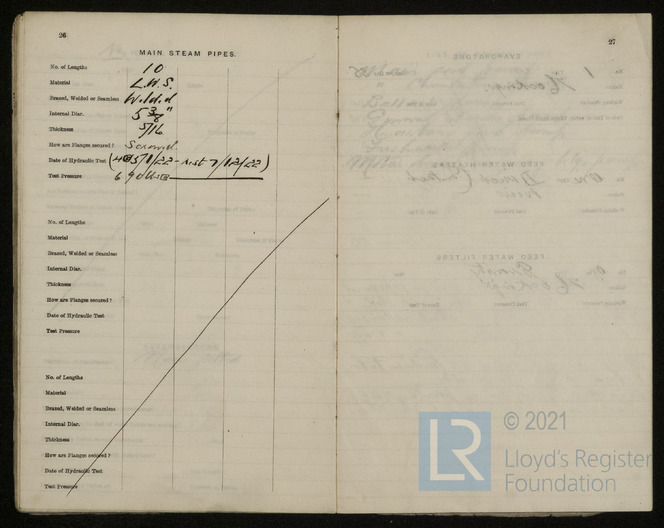 26
MAIN STEAM PIPES.
No. of Lengths 10
Material L.W.S.
Brazed, Welded or Seamless Welded
Internal Diar. 5 3/8"
Thickness 5/16
How are Flanges secured? Screwed
Date of Hydraulic Test /22 - rest 7/12/22)
Test Pressure
No. of Lengths
Material
Brazed, Welded or Seamless
Internal Diar.
Thickness
How are Flanges secured?
Date of Hydraulic Test
Test Pressure
No. of Lengths
Material
Brazed, Welded or Seamless
Internal Diar.
Thickness
How are Flanges secured?
Date of Hydraulic Test
Test Pressure
27
LR
© 2021
Lloyd's Register
Foundation